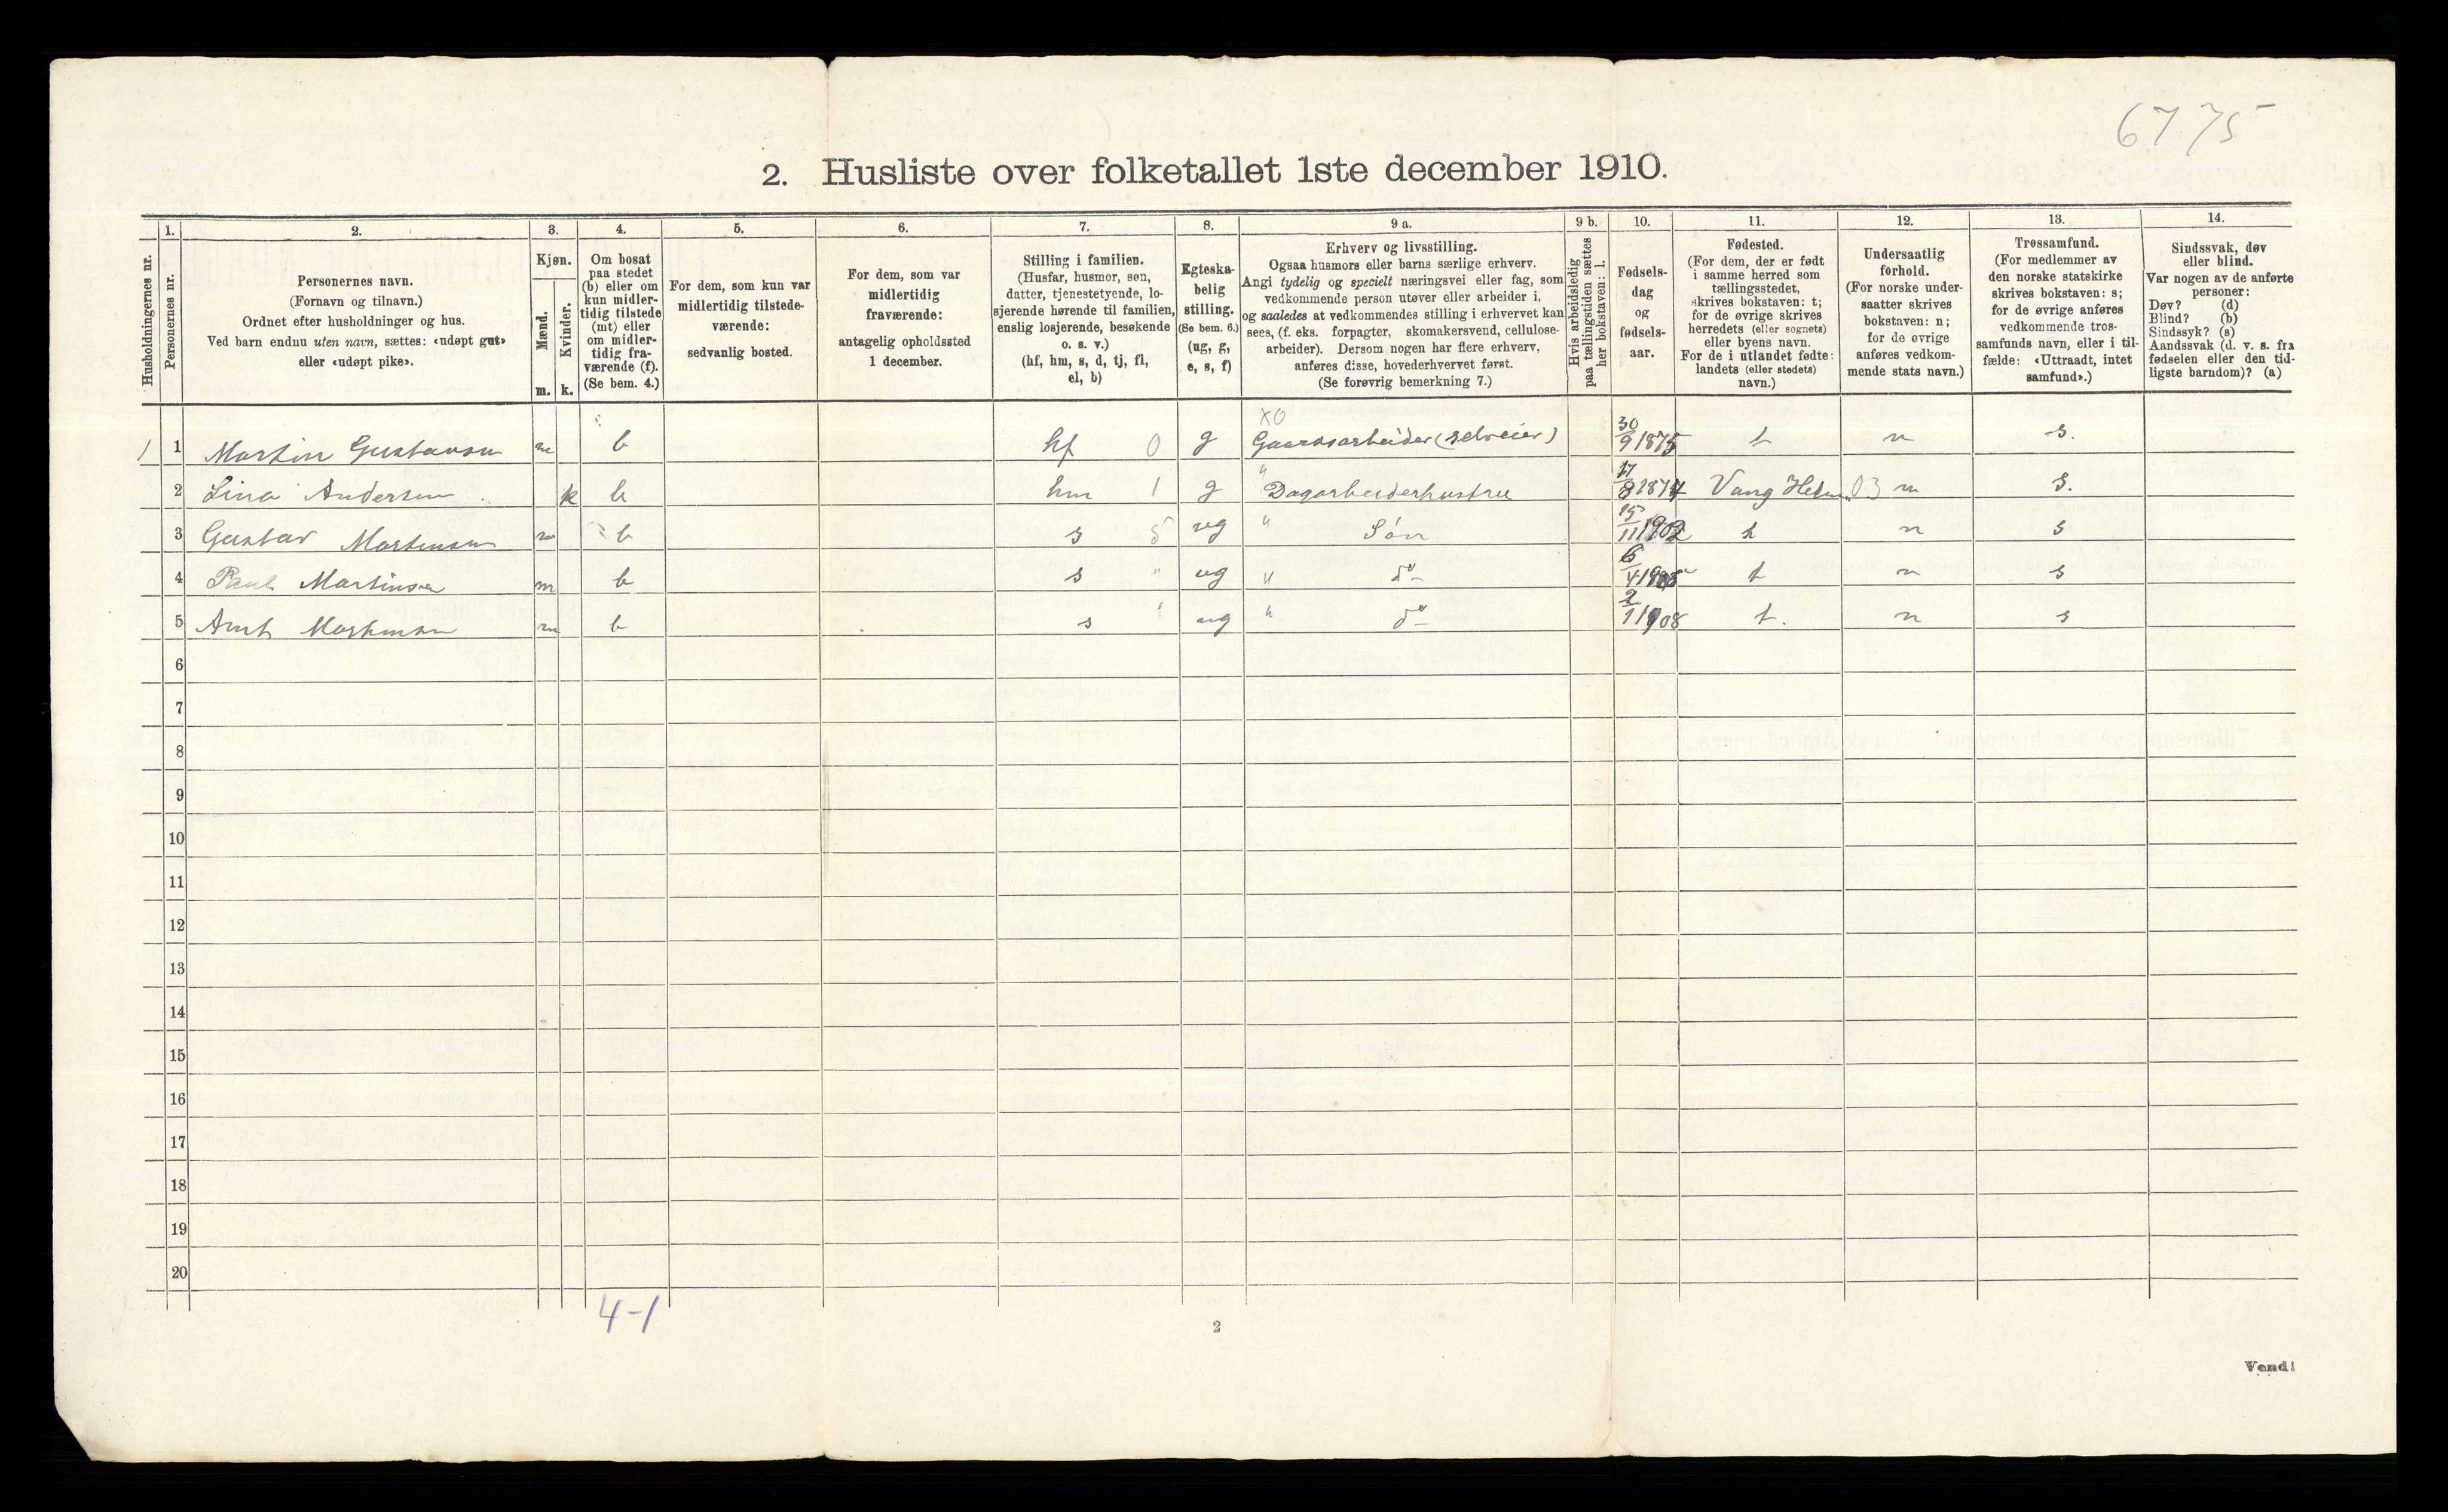 6775
2. Husliste over folketallet 1ste december 1910.
Husholdningernes nr.
1.
Personernes nr.
2.
Personernes navn.
(Fornavn og tilnavn.)
Ordnet efter husholdninger og hus.
Ved barn endnu uten navn, sættes: «udøpt gut»
eller «udøpt pike».
3.
Kjøn.
Mænd.
m.
Kvinder.
k.
4.
Om bosat
paa stedet
(b) eller om
kun midler-
tidig tilstede
(mt) eller
om midler-
tidig fra-
værende (f).
(Se bem. 4.)
5.
For dem, som kun var
midlertidig tilstede-
værende:
sedvanlig bosted.
6.
For dem, som var
midlertidig
fraværende:
antagelig opholdssted
1 december.
7.
Stilling i familien.
(Husfar, husmor, søn,
datter, tjenestetyende, lo-
sjerende hørende til familien,
enslig losjerende, besøkende
o. s. v.)
(hf, hm, s, d, tj, fl,
el, b)
8.
Egteska-
belig
stilling.
(Se bem. 6.)
(ug, g,
e, s, f)
9 a.
Erhverv og livsstilling.
Ogsaa husmors eller barns særlige erhverv.
Angi tydelig og specielt næringsvei eller fag, som
vedkommende person utøver eller arbeider i,
og saaledes at vedkommendes stilling i erhvervet kan
sees, (f. eks. forpagter, skomakersvend, cellulose-
arbeider). Dersom nogen har flere erhverv,
anføres disse, hovederhvervet først.
(Se forøvrig bemerkning 7.)
9 b.
Hvis arbeidsledig
paa tællingstiden sættes
her bokstaven: l.
10.
Fødsels-
dag
og
fødsels-
aar.
11.
Fødested.
(For dem, der er født
i samme herred som
tællingsstedet,
skrives bokstaven: t;
for de øvrige skrives
herredets (eller sognets)
eller byens navn.
For de i utlandet fødte:
landets (eller stedets)
navn.)
12.
Undersaatlig
forhold.
(For norske under-
saatter skrives
bokstaven: n;
for de øvrige
anføres vedkom-
mende stats navn.)
13.
Trossamfund.
(For medlemmer av
den norske statskirke
skrives bokstaven: s;
for de øvrige anføres
vedkommende tros-
samfunds navn, eller i til-
fælde: «Uttraadt, intet
samfund».)
14.
Sindssvak, døv
eller blind.
Var nogen av de anførte
personer:
Døv? (d)
Blind? (b)
Sindssyk? (s)
Aandssvak (d. v. s. fra
fødselen eller den tid-
ligste barndom)? (a)
XO
1 1 Martin Gustavsen m b hf 0 g Gaardsarbeider (selveier) 30/9 1875 t n s.
2 Lina Andersen k b hm 1 g " Dagarbeiderhustru 17/8 1874 Vang Hedm. 03 n s.
3 Gustav Martinsen m b s 5 ug " Søn 15/11 1902 t n s
4 Paul Martinsen m b s " ug " do 6/4 t n s
5 Arnt Martinsen m b s " ug " do 2/1 1908 t. n s
6
7
8
9
10
11
12
13
14
15
16
17
18
19
20
4-1
2
Vend!